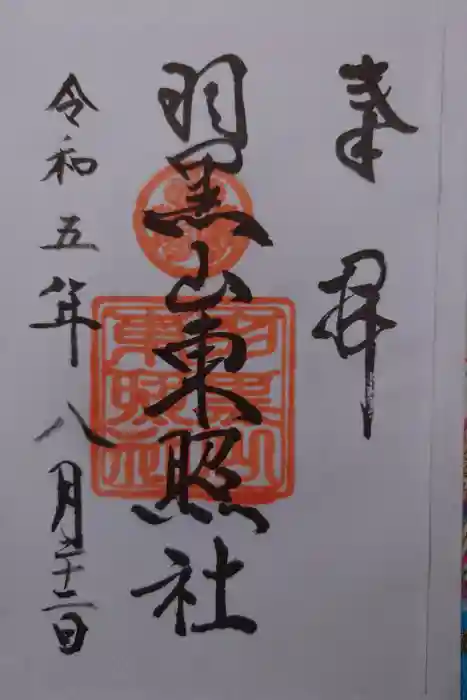 奉拝
羽黒山東照社
令和五年八月二十二日
羽黒山
東照社